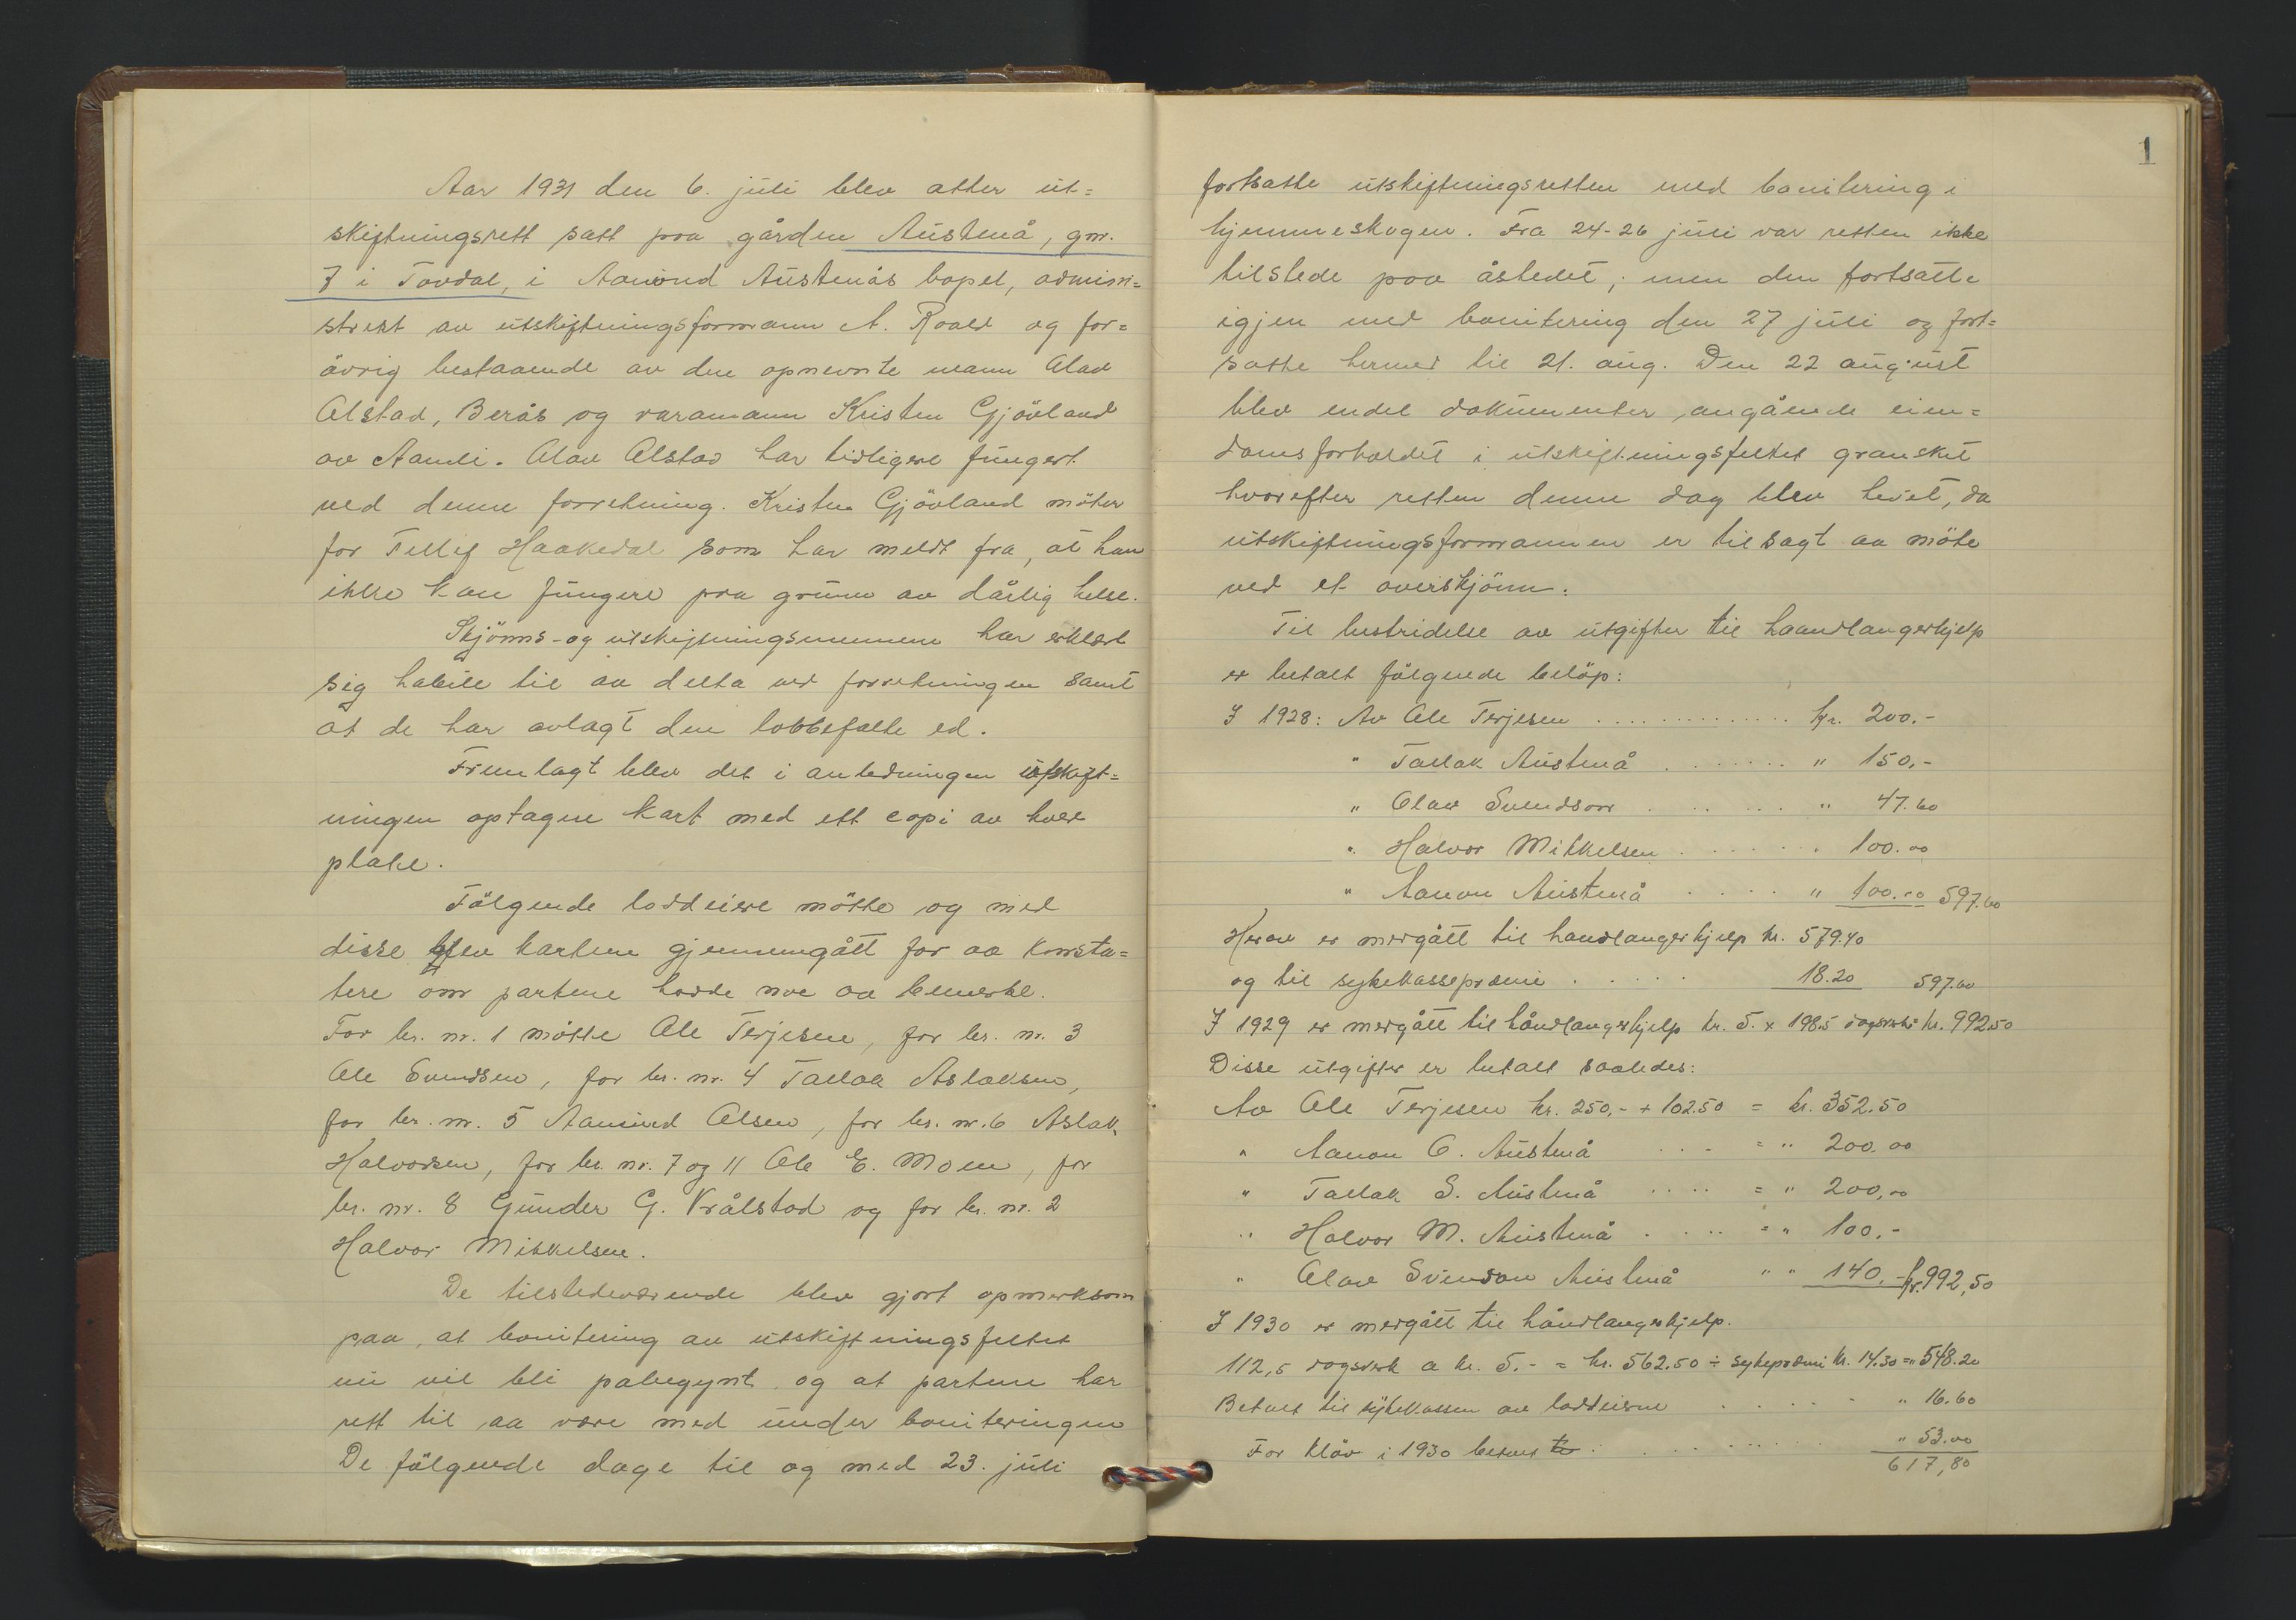 Aar 1931 den 6. juli blev atter ut=
skiftningsrett satt paa gården Austenå, gnr.
7 i Tovdal, i Aamund Austenås bopel, admini=
strert av utskiftningsformann A. Roald og for=
övrig bestaaende av den opnevnte mann Olav
Olstad, Berås og varamann Kristen Gjövland
av Aamli. Olav Olstad har tidligere fungert
ved denne forretning. Kristen Gjövland möter
for Tellef Haakedal som har meldt fra, at han
ikke kan fungere paa grunn av dårlig helse.
Skjönns- og utskiftningsmennene har erklært
sig habile til aa delta ved forretningen samt
at de har avlagt den lovbefalte ed.
Fremlagt blev det i anledningen utskift=
ningen optagne kart med ett copi av hver
plate.
Fölgende loddeiere mötte og med
disse blev kartene gjennemgått for aa konsta=
tere om partene hadde noe aa bemerke.
For br. nr. 1 mötte Ole Terjesen, for br. nr. 3
Ole Svendsen, for br. nr. 4 Tallak Aslaksen,
for br. nr. 5 Aamund Olsen, for br. nr. 6 Aslak
Halvorsen, for br. nr. 7 og 11 Ole E. Moen, for
br. nr. 8 Gunder G. Vrålstad og for br. nr. 2
Halvor Mikkelsen.
De tilstedeværende blev gjort opmerksom
paa, at bonitering av utskiftningsfeltet
nu vil bli påbegynt, og at partene har
rett til aa være med under boniteringen
De fölgende dage til og med 23. juli
1
fortsatte utskiftningsretten med bonitering i
hjemmeskogen. Fra 24-26 juli var retten ikke
tilstede paa åstedet; men den fortsatte
igjen med bonitering den 27 juli og fort=
satte hermed til 21. aug. Den 22 august
blev endel dokumenter angående eien=
domsforholdet i utskiftningsfeltet gransket
hvorefter retten denne dag blev hevet, da
utskiftningsformannen er tilsagt aa möte
ved et overskjönn.
Til bestridelse av utgifter til haandlangerhjelp
er betalt fölgende belöp:
I 1928: Av Ole Terjesen .............. kr. 200.-
" Tallak Austenå ....... " 150.-
" Olav Svendson ..... " 47.60
" Halvor Mikkelsen ...... 100.00
" Aanon Austenå .... " 100.00 597.60
Herav er medgått til handlangerhjelp kr. 579.40
og til sykekassepremie ..... 18.20 597.60
I 1929 er medgått til håndlangerhjelp kr. 5. x 198.5 dagsverk = kr. 992.50
Disse utgifter er betalt saaledes:
Av Ole Terjesen kr. 250,- + 102.50 = kr. 352.50
" Aanon O. Austenå ... = " 200.00
" Tallak S. Austenå .... = " 200,00
" Halvor M. Austenå .... = " 100.-
" Olav Svendson Austenå " " 140.- kr. 992,50
I 1930 er medgått til håndlangerhjelp.
112,5 dagsverk a kr. 5.- = kr. 562.50 ÷ sykepremi kr. 14.30 = " 548.20
Betalt til sykekassen av loddeierne ..... " 16.60
For klöv i 1930 betalt ..... " 53.00
617,80